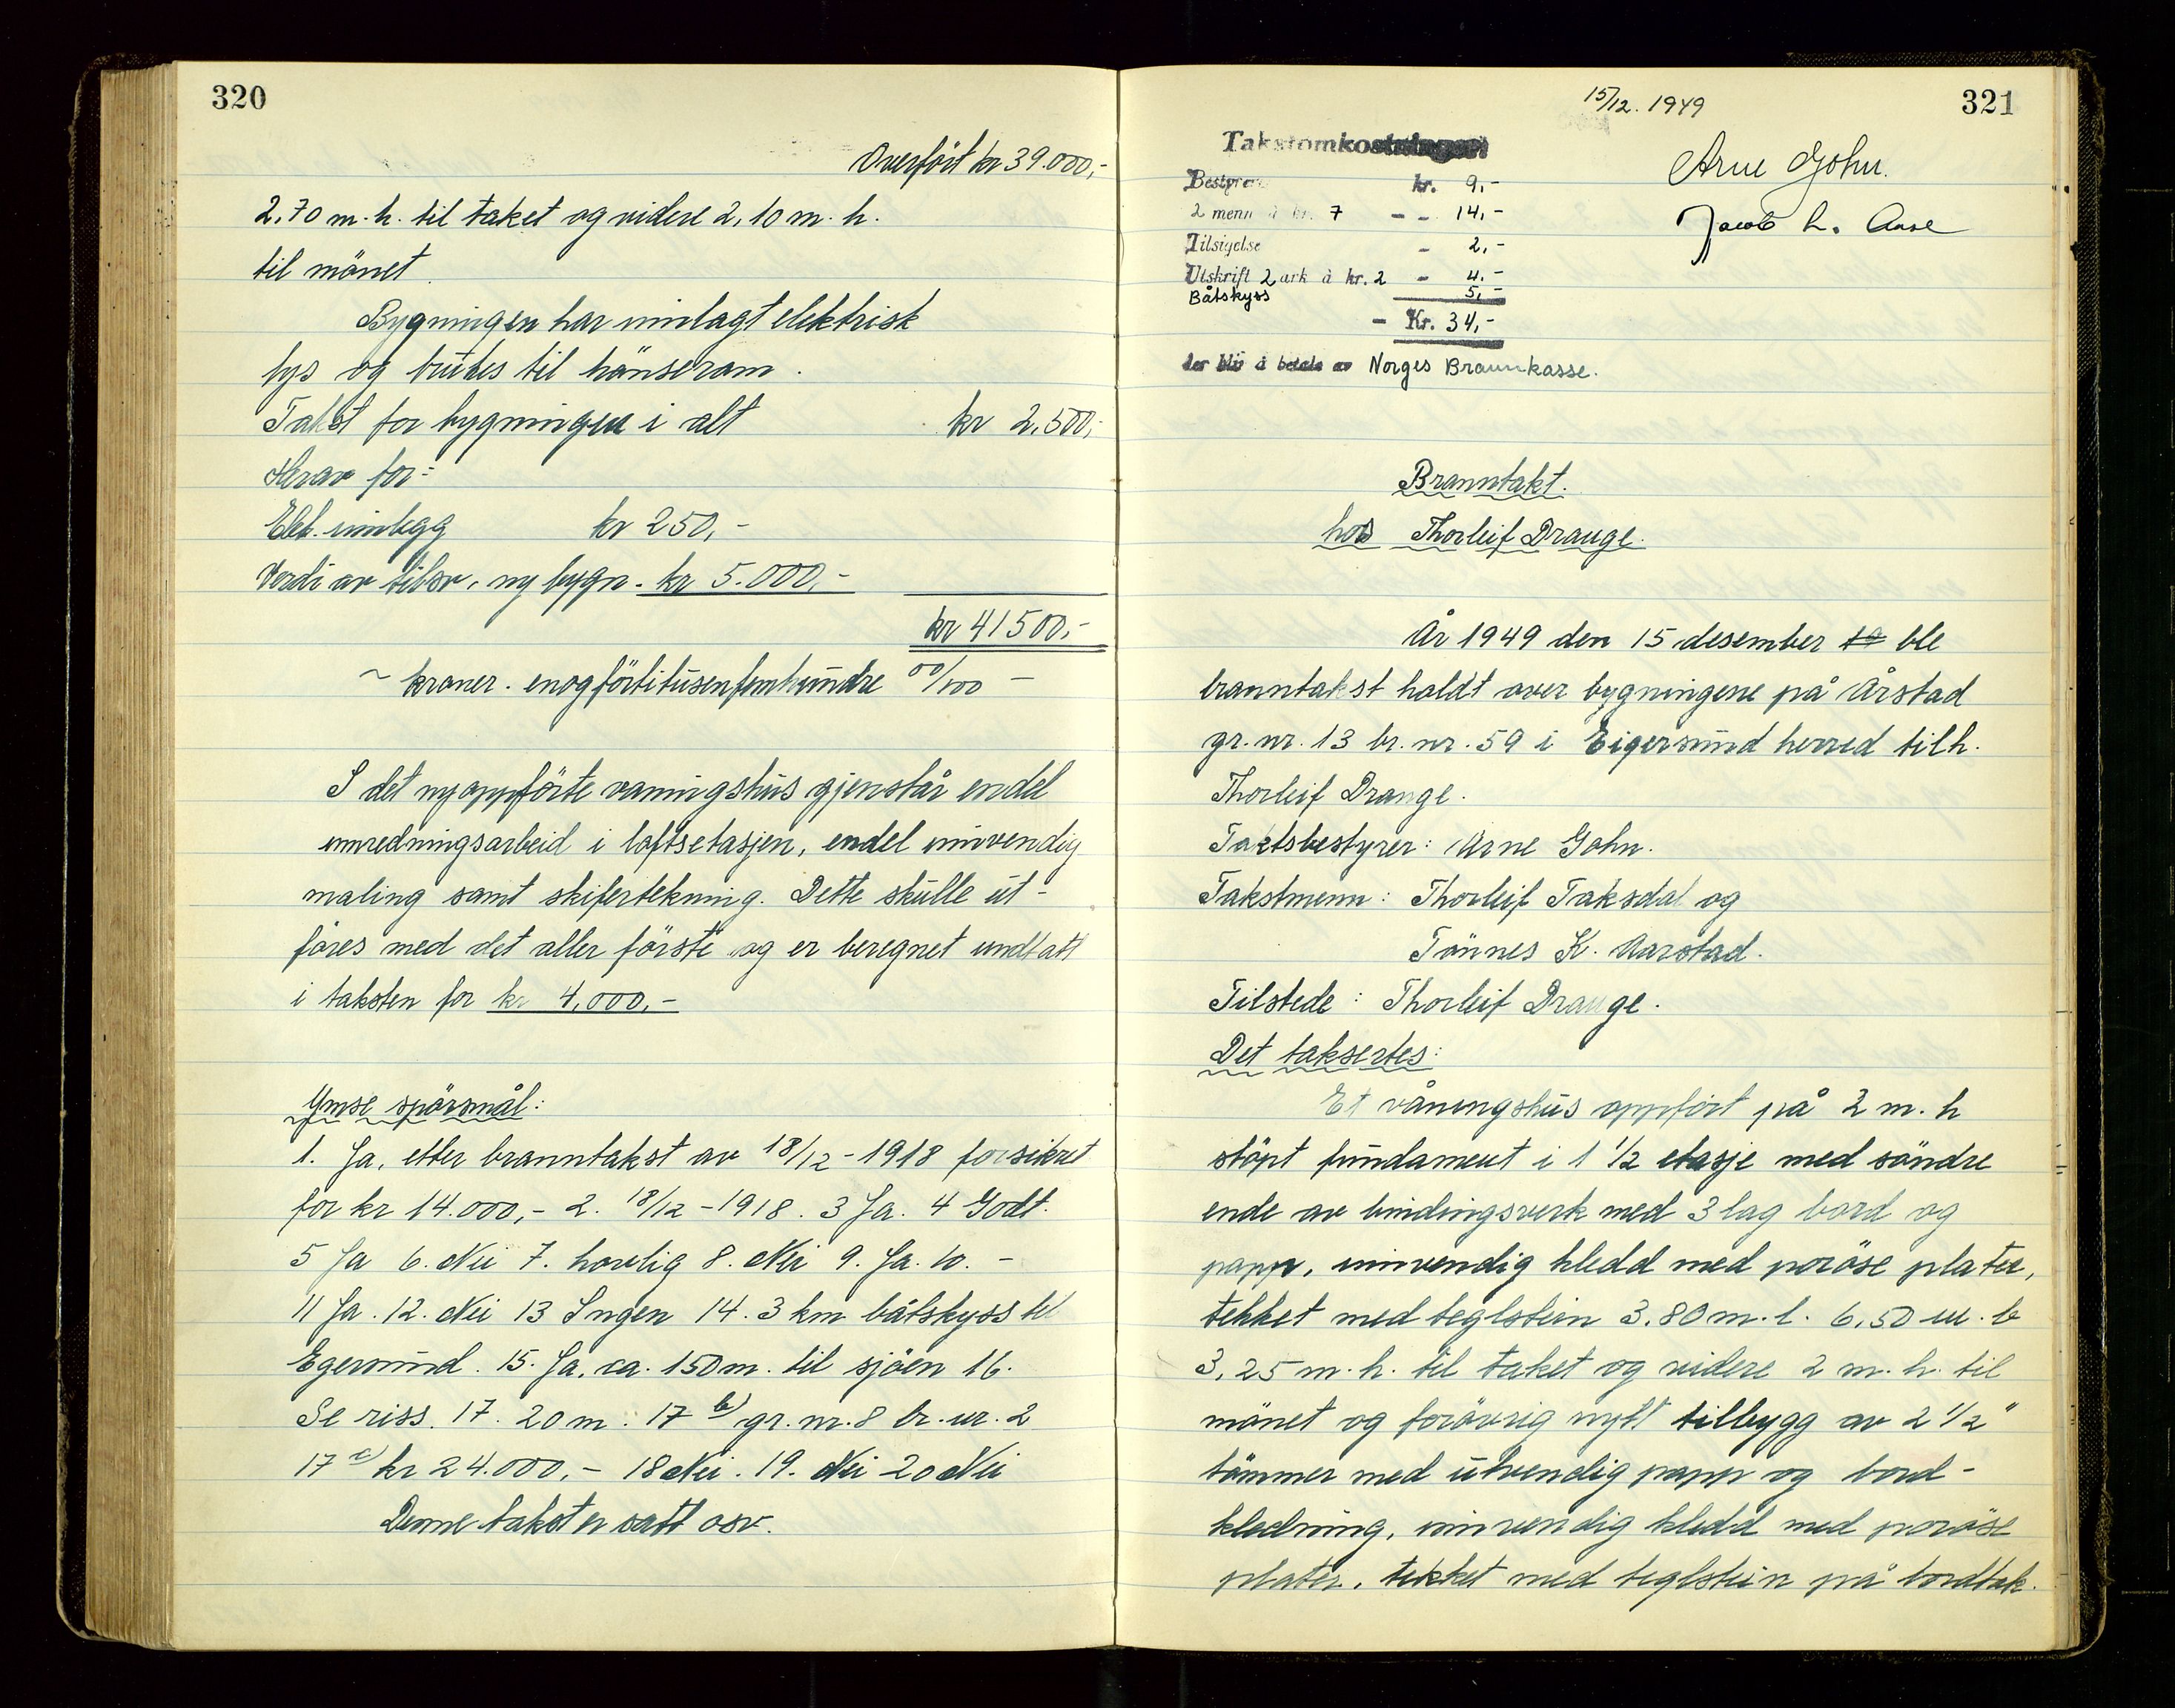 320
Overført kr 39.000,-
2,70 m. h. til taket og videre 2,10 m. h.
til mönet.
Bygningen har innlagt elektrisk
lys og brukes til hönserom.
Takst for bygningen i alt kr 2.500,-
Herav for:
Elek. innlegg kr 250,-
Verdi av tilsv. ny bygn. kr 5.000,-
kr 41500,-
~ kroner. enogförtitusenfemhundre 00/100 —
I det nyoppförte vaningshus gjenstår endel
innredningsarbeid i loftsetasjen, endel innvendig
maling samt skifertekning. Dette skulle ut-
føres med det aller förste og er beregnet undtatt
i taksten for kr 4.000,-
Ymse spörsmål:
1. Ja, etter branntakst av 18/12-1918 forsikret
for kr 14.000,- 2. 18/12-1918. 3 Ja. 4 Godt.
5 Ja 6. Nei 7. hovlig 8. Nei 9. Ja. 10. -
11 Ja. 12. Nei 13 Ingen 14. 3 km båtskyss til
Egersund. 15. Ja, ca. 150 m. til sjöen 16.
Se riss. 17. 20 m. 17 b) gr. nr. 8 br. nr. 2
17 c) kr 24.000,- 18 Nei. 19. Nei 20 Nei
Denne takst er satt osv.
15/12. 1949
321
Takstomkostninger
Bestyrer kr. 9,-
2 menn à kr. 7 - - 14,-
Tilsigelse - 2,-
Utskrift 2 ark à kr. 2 - 4,-
Båtskyss 5,-
- Kr. 34,-
der blir å betale av Norges Brannkasse.
Arne Gohn.
Jacob L. Aase
Branntakt.
hos Thorleif Drange.
År 1949 den 15 desember 19 ble
branntakst holdt over bygningene på Årstad
gr. nr. 13 br. nr. 59 i Eigersund herred tilh.
Thorleif Drange.
Taktsbestyrer: Arne Gohn.
Takstmenn: Thorleif Taksdal og
Tönnes K. Aarstad.
Tilstede: Thorleif Drange.
Det taksertes:
Et våningshus oppfört på 2 m. h
stöpt fundament i 1 1/2 etasje med söndre
ende av bindingsverk med 3 lag bord og
papp, innvendig kledd med poröse plater,
tekket med teglstein 3,80 m. l. 6,50 m. b
3,25 m. h. til taket og videre 2 m. h. til
mönet og forövrig nytt tilbygg av 2 1/2"
tömmer med utvendig papp og bord-
kledning, innvendig kledd med poröse
plater, tekket med teglstein på bordtak.